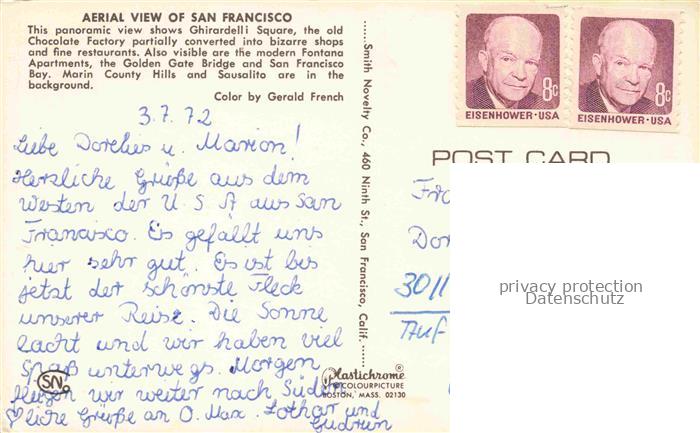 AERIAL VIEW OF SAN FRANCISCO
This panoramic view shows Ghirardelli Square, the old
Chocolate Factory partially converted into bizarre shops
and fine restaurants. Also visible are the modern Fontana
Apartments, the Golden Gate Bridge and San Francisco
Bay. Marin County Hills and Sausalito are in the
background.
Color by Gerald French
3.7.72
Liebe Dorelies u. Marion!
Herzliche Grüße aus dem
Westen der U S A aus San
Francisco. Es gefällt uns
hier sehr gut. Es ist bis
jetzt der schönste Fleck
unserer Reise. Die Sonne
lacht und wir haben viel
Spaß unterwegs. Morgen
fliegen wir weiter nach Süden.
liche Grüße an O. Max. Lothar und
Gudrun
SN
Smith Novelty Co., 460 Ninth St., San Francisco, Calif.
Plastichrome®
COLOURPICTURE
BOSTON, MASS. 02130
8c
EISENHOWER·USA
8c
EISENHOWER·USA
POST CARD
Fra
Dor
3011
Auf
privacy protection
Datenschutz